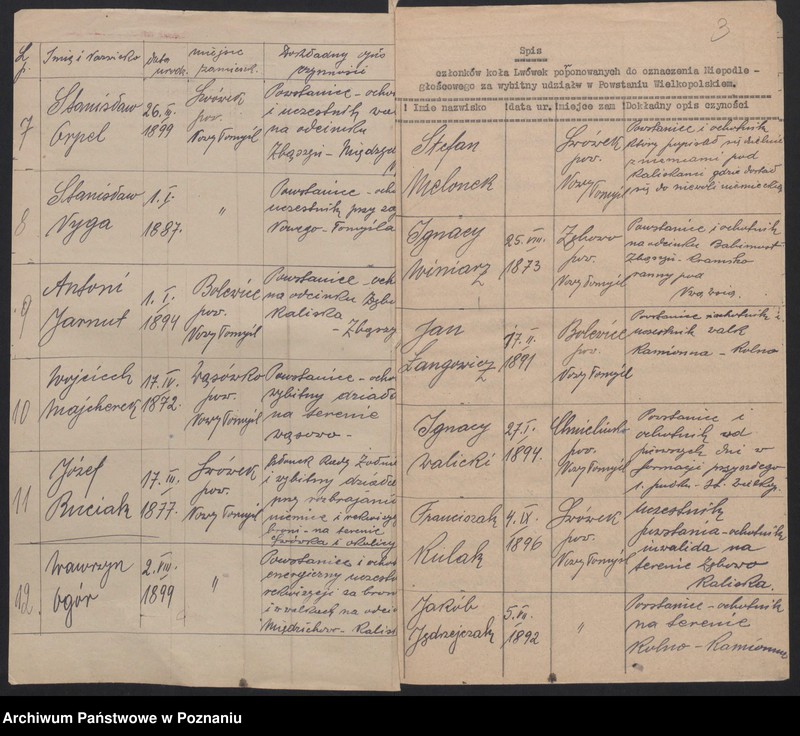 L.p.
Imię i Nazwisko
data urodz.
miejsce zamieszk.
Dokładny opis czynności
7
Stanisław Orpel
26. 1899
Lwówek pow. Nowy Tomyśl
Powstaniec - ocho
i uczestnik wa
na odcinku
Zbąszyń - Międzych
8
Stanisław Nyga
1. 1887.
"
Powstaniec - och
uczestnik przy za
Nowego - Tomyśla
9
Antoni Jarnut
1. I. 1894
Bolewice pow. Nowy Tomyśl
Powstaniec - och
na odcinku
Kaliska
- Zbąszy
10
Wojciech Majcherek
17. IV. 1872.
Wąsówko pow. Nowy Tomyśl
Powstaniec - ocho
wybitny działa
na terenie
wąsowo -
11
Józef Ruciak
17. III. 1877.
Lwówek pow. Nowy Tomyśl
członek Rady Żołni
i wybitny działa
przy rozbrajaniu
niemców i rekwizy
broni - na terenie
Lwówka i okolicy
12
Wawrzyn Ogór
2. VIII. 1899
"
Powstaniec i ocho
energiczny uczest
rekwizycji za bron
i w walkach na odci
Międzichowo - Kalisk
3
Spis
członków koła Lwówek poponowanych do oznaczenia Niepodle -
głościowego za wybitny udziałw w Powstaniu Wielkopolskiem.
! Imie nazwisko !data ur.!miejsce zam !Dokładny opis czyności
Stefan Melonek
Lwówek pow. Nowy Tomyśl
Powstaniec i ochotnik
który popisał się dzielnie
z niemcami pod
Kaliskami gdzie dostał
się do niewoli niemieckiej
Ignacy Winiarz
25. VIII. 1873
Zębowo pow. Nowy Tomyśl
Powstaniec i ochotnik
na odcinku Babimost
Zbąszyń - Kramsko
ranny pod
Jan Langowicz
17. II. 1891
Bolewice pow. Nowy Tomyśl
Powstaniec ochotnik i
uczestnik walk
Kamionna - Kolno
Ignacy Walicki
27. I. 1894.
Chmielinko pow. Nowy Tomyśl
Powstaniec i
ochotnik od
pierwszych dni w
formacji przyszłego
1. pułk. st. wlkp.
Franciszak Kulak
4. IX. 1896
Lwówek pow. Nowy Tomyśl
uczestnik
powstania - ochotnik
inwalida na
terenie Zębowo
Kaliska.
Jakób Jędrzejczak
5. VII. 1892
"
Powstaniec - ochotnik
na terenie
Kolno - Kamionna
Archiwum Państwowe w Poznaniu